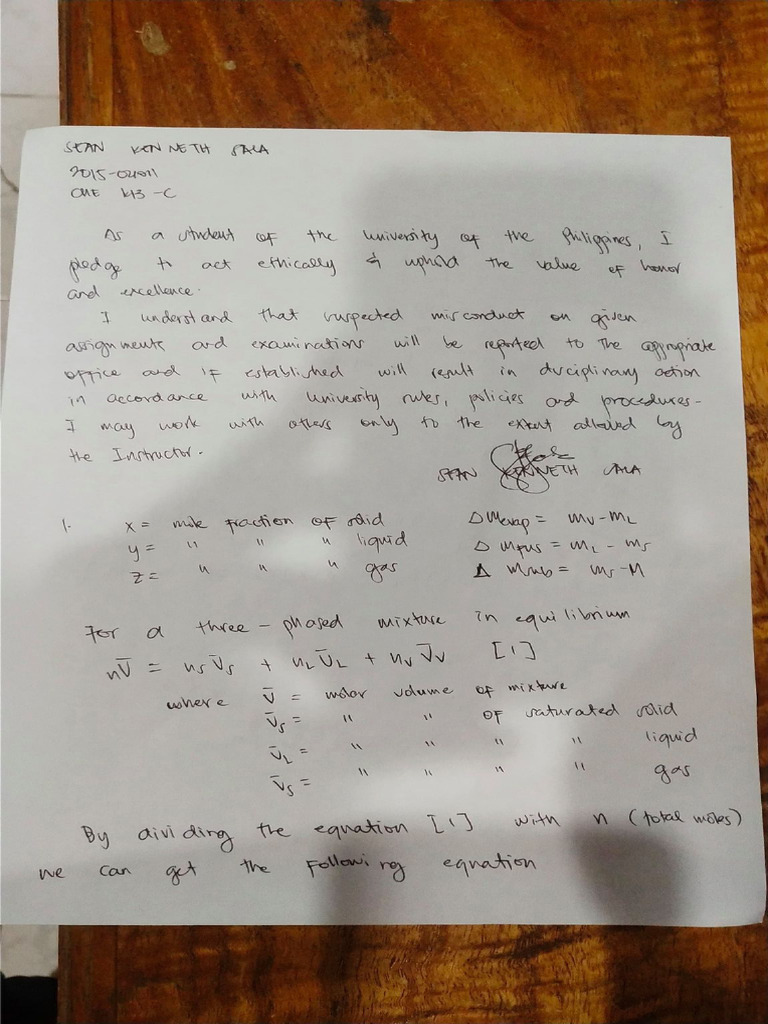 SEAN KENNETH SALA
2015-04011
CHE 143 - C
As a student of the university of the Philippines, I
pledge to act ethically & uphold the value of honor
and excellence.
I understand that suspected misconduct on given
assignments and examinations will be reported to the appropriate
office and if established will result in disciplinary action
in accordance with university rules, policies and procedures.
I may work with others only to the extent allowed by
the Instructor.
SEAN KENNETH SALA
1. x = mole fraction of solid ΔMevap = Mv - ML
y = " " " liquid ΔMfus = ML - Ms
z = " " " gas Δ Msub = Ms - M
For a three - phased mixture in equilibrium
nV̄ = ns V̄s + nL V̄L + nv V̄v [1]
where V̄ = molar volume of mixture
V̄s = " " of saturated solid
V̄L = " " " " liquid
V̄s = " " " " gas
By dividing the equation [1] with n (total moles)
we can get the following equation